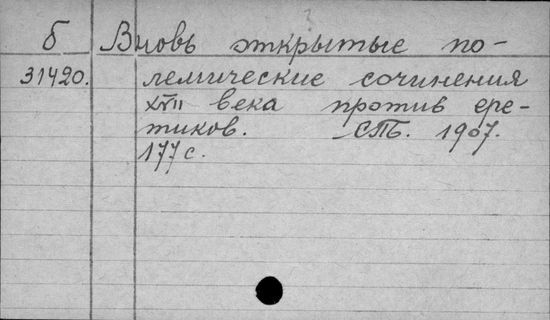 б Вновь открытые по-
31420. лемические сочинения
XVII века против ере-
тиков. СПБ. 1907.
177 с.